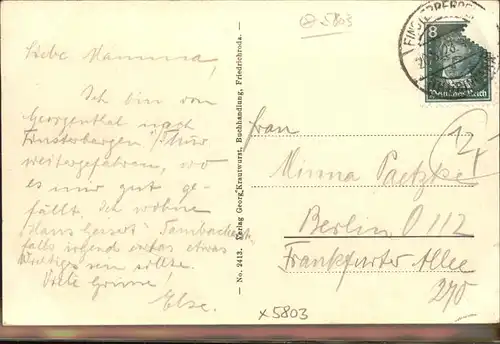 x 5803
FINSTERBERGEN
8
Deutsches Reich
Liebe Mamma,
Ich bin von
Georgenthal nach
Finsterbergen /Thür
weitergefahren, wo
es mir gut ge-
fällt. Ich wohne
"Haus Geisert" Tambacherstr.
falls irgend etwas
Wichtiges sein sollte.
Viele Grüsse!
Else.
— No. 2413. Verlag Georg Krautwurst, Buchhandlung, Friedrichroda. —
Frau
Minna Paetzke
Berlin O 112
Frankfurter Allee
270
12
x 5803